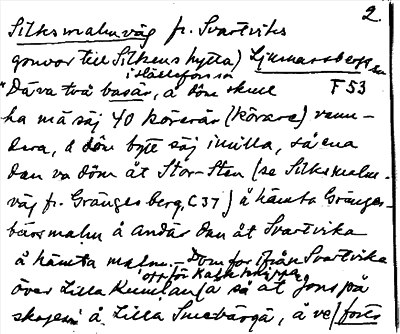 2.
Silksmalmväg fr. Svartviks
gruvor till Silkens hytta) Ljusnarsbergs sn
i Hällefors sn
"Dä va två basar, å döm skull F 53
ha mä säj 40 körerär (körare) vann-
dera, å döm bytt säj imilla, så ena
dan va döm åt Stor-Sten (se Silksmalm-
väg fr. Grängesberg, C 37) å hämta Gränges-
bärsmalm å andär dan åt Svartvika
å hämta malm. – Dom for ifrån Svartvika
opp för Kalkmyrpa
över Lilla an(a så åt Jons på
skogen å Lilla Smebärgä, å ve (forts